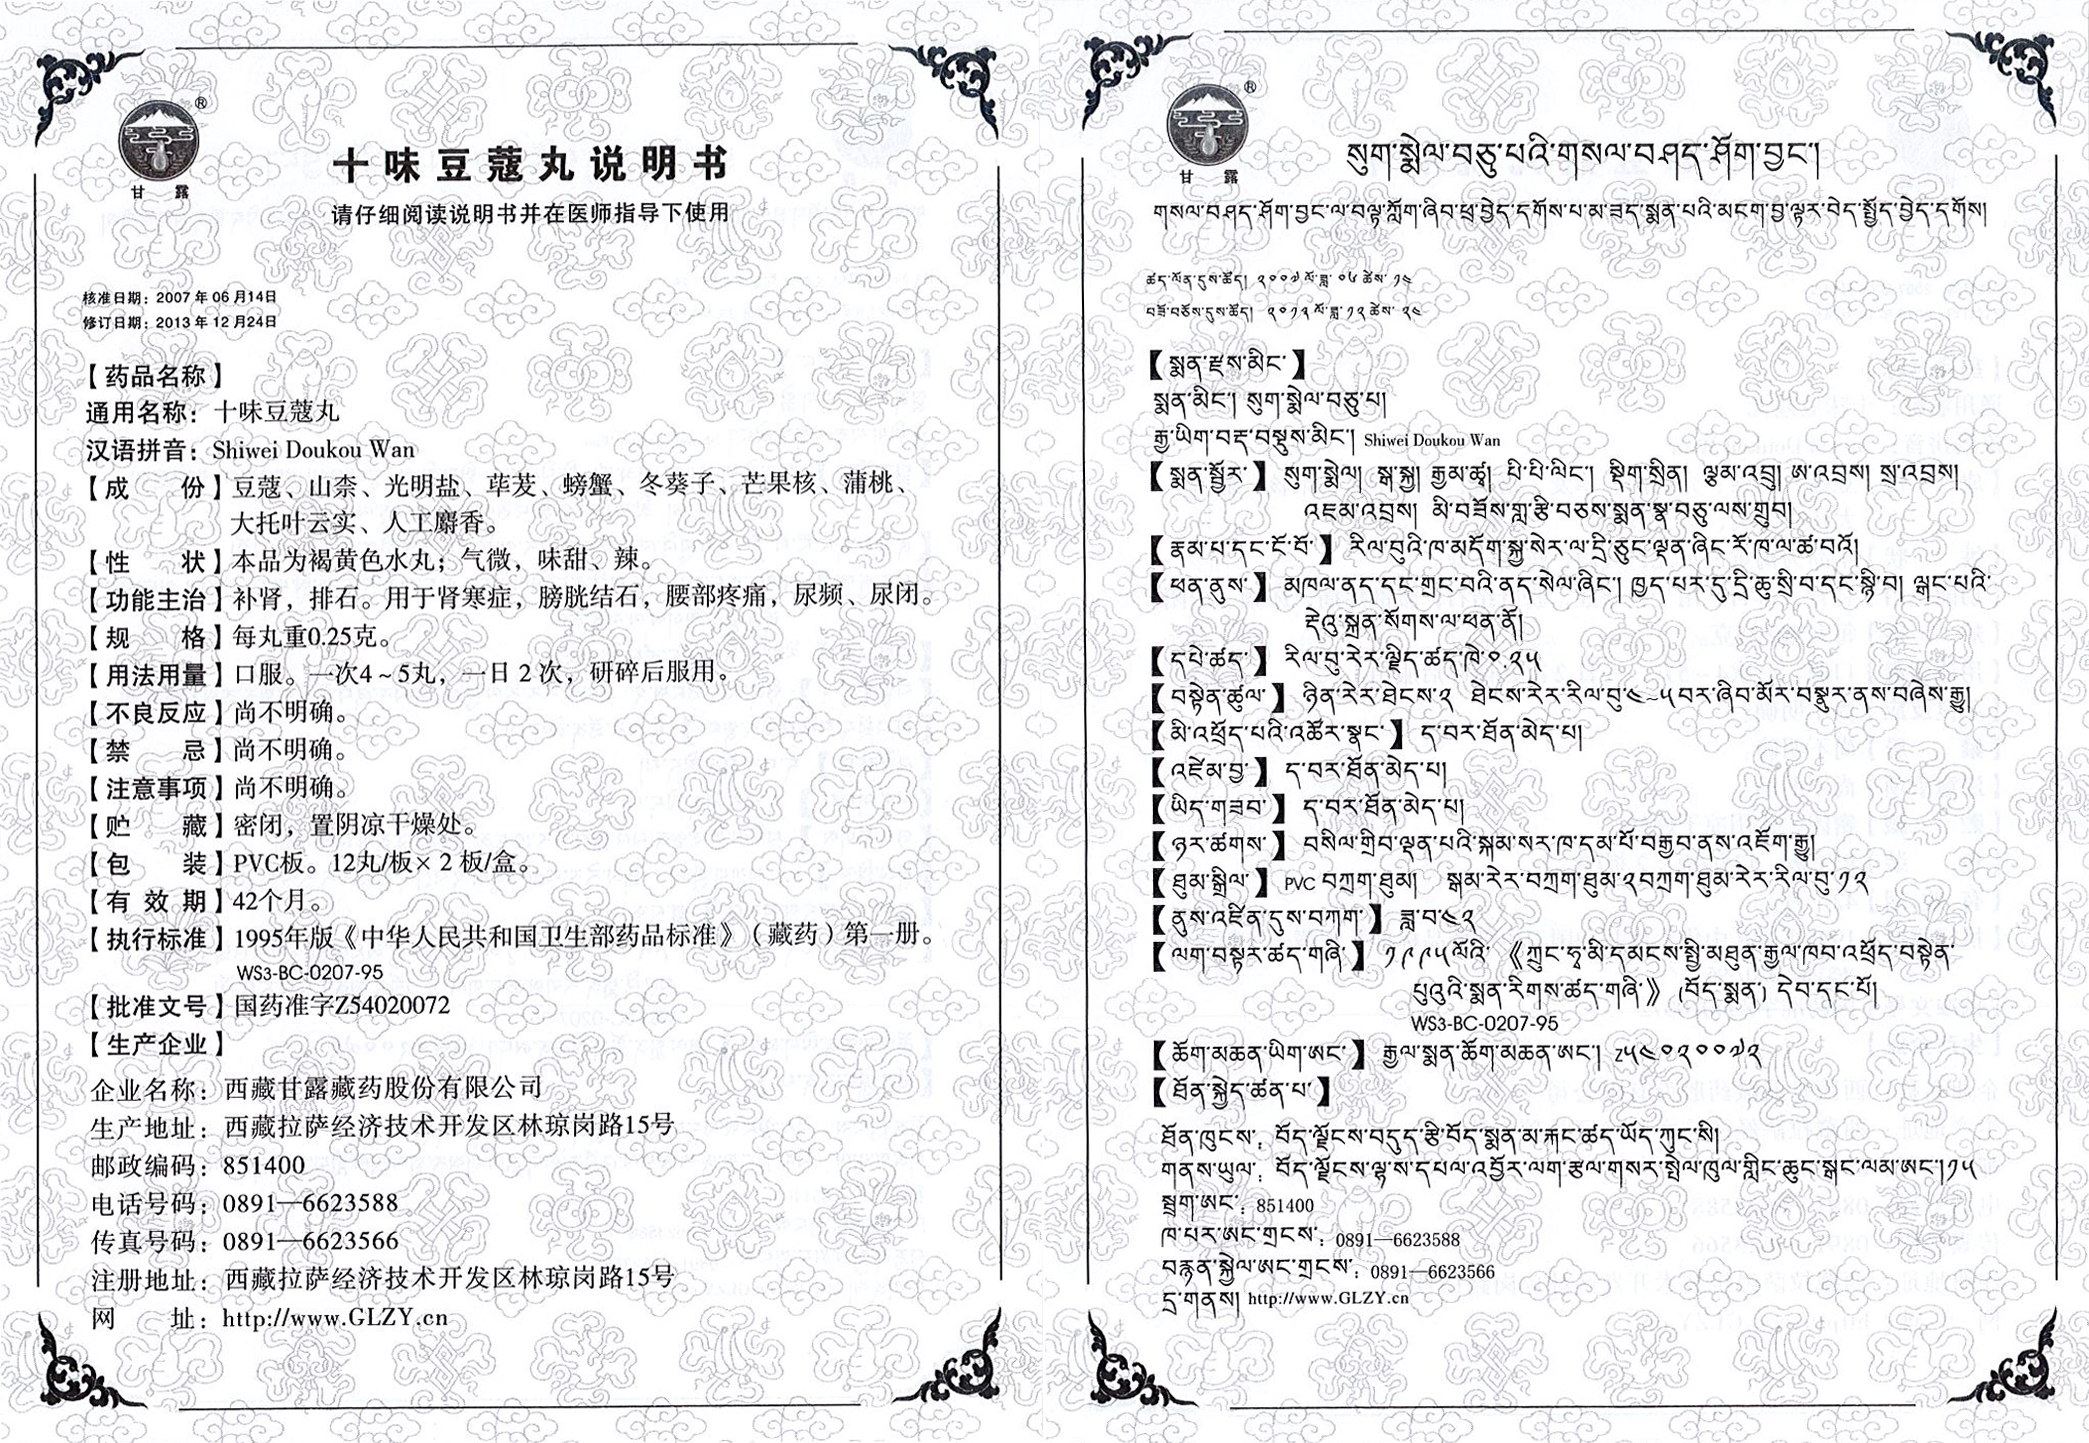 甘露
®
十味豆蔻丸说明书
请仔细阅读说明书并在医师指导下使用
核准日期：2007 年 06 月14日
修订日期：2013 年 12 月24日
【药品名称】
通用名称：十味豆蔻丸
汉语拼音：Shiwei Doukou Wan
【成份】豆蔻、山柰、光明盐、荜茇、螃蟹、冬葵子、芒果核、蒲桃、
大托叶云实、人工麝香。
【性状】本品为褐黄色水丸；气微，味甜、辣。
【功能主治】补肾，排石。用于肾寒症，膀胱结石，腰部疼痛，尿频、尿闭。
【规格】每丸重0.25克。
【用法用量】口服。一次4～5丸，一日 2 次，研碎后服用。
【不良反应】尚不明确。
【禁忌】尚不明确。
【注意事项】尚不明确。
【贮藏】密闭，置阴凉干燥处。
【包装】PVC板。12丸/板× 2 板/盒。
【有效期】42个月。
【执行标准】1995年版《中华人民共和国卫生部药品标准》（藏药）第一册。
WS3-BC-0207-95
【批准文号】国药准字Z54020072
【生产企业】
企业名称：西藏甘露藏药股份有限公司
生产地址：西藏拉萨经济技术开发区林琼岗路15号
邮政编码：851400
电话号码：0891—6623588
传真号码：0891—6623566
注册地址：西藏拉萨经济技术开发区林琼岗路15号
网址：http://www.GLZY.cn
甘露
®
སུག་སྨེལ་བཅུ་པའི་གསལ་བཤད་ཤོག་བྱང་།
གསལ་བཤད་ཤོག་བྱང་ལ་བལྟ་ཀློག་ཞིབ་ཕྲ་བྱེད་དགོས་པ་མ་ཟད་སྨན་པའི་མངག་བྱ་ལྟར་བེད་སྤྱོད་བྱེད་དགོས།
ཚད་ལོན་དུས་ཚོད། ༢༠༠༧ ལོ་ཟླ་ ༠༦ ཚེས་ ༡༤
བཟོ་བཅོས་དུས་ཚོད། ༢༠༡༣ ལོ་ཟླ་ ༡༢ ཚེས་ ༢༤
【སྨན་རྫས་མིང་】
སྨན་མིང་། སུག་སྨེལ་བཅུ་པ།
རྒྱ་ཡིག་བརྡ་བསྡུས་མིང་། Shiwei Doukou Wan
【སྨན་སྦྱོར་】 སུག་སྨེལ། སྒ་སྐྱ། རྒྱམ་ཚྭ། པི་པི་ལིང་། སྡིག་སྲིན། ལྕམ་འབྲུ། ཨ་འབྲས། སྲ་འབྲས།
འཇམ་འབྲས། མི་བཟོས་གླ་རྩི་བཅས་སྨན་སྣ་བཅུ་ལས་གྲུབ།
【རྣམ་པ་དང་ངོ་བོ་】 རིལ་བུའི་ཁ་མདོག་སྐྱ་སེར་ལ་དྲི་ཅུང་ལྡན་ཞིང་རོ་ཁ་ལ་ཚ་བའོ།
【ཕན་ནུས་】 མཁལ་ནད་དང་གྲང་བའི་ནད་སེལ་ཞིང་། ཁྱད་པར་དུ་དྲི་ཆུ་སྲི་བ་དང་སྙི་བ། ལྒང་པའི་
རྡེའུ་སྐྲན་སོགས་ལ་ཕན་ནོ།
【དཔེ་ཚད་】 རིལ་བུ་རེར་ལྗིད་ཚད་ཁེ་༠.༢༥
【བསྟེན་ཚུལ་】 ཉིན་རེར་ཐེངས་༢ ཐེངས་རེར་རིལ་བུ་༤-༥བར་ཞིབ་མོར་བསྣུར་ནས་བཞེས་རྒྱུ།
【མི་འཕྲོད་པའི་འཚོར་སྣང་】 ད་བར་ཐོན་མེད་པ།
【འཛེམ་བྱ་】 ད་བར་ཐོན་མེད་པ།
【ཡིད་གཟབ་】 ད་བར་ཐོན་མེད་པ།
【ཉར་ཚགས་】 བསིལ་གྲིབ་ལྡན་པའི་སྐམ་སར་ཁ་དམ་པོ་བརྒྱབ་ནས་འཇོག་རྒྱུ།
【ཐུམ་སྒྲིལ་】 PVC བཀྲག་ཐུམ། སྒམ་རེར་བཀྲག་ཐུམ་༢བཀྲག་ཐུམ་རེར་རིལ་བུ་༡༢
【ནུས་འཛིན་དུས་བཀག་】 ཟླ་བ་༤༢
【ལག་བསྟར་ཚད་གཞི་】 ༡༩༩༥ལོའི་ 《ཀྲུང་ཧྭ་མི་དམངས་སྤྱི་མཐུན་རྒྱལ་ཁབ་འཕྲོད་བསྟེན་
པུའུའི་སྨན་རིགས་ཚད་གཞི་》 (བོད་སྨན་) དེབ་དང་པོ།
WS3-BC-0207-95
【ཆོག་མཆན་ཡིག་ཨང་】 རྒྱལ་སྨན་ཆོག་མཆན་ཨང་། Z༥༤༠༢༠༠༧༢
【ཐོན་སྐྱེད་ཚན་པ་】
ཐོན་ཁུངས་: བོད་ལྗོངས་བདུད་རྩི་བོད་སྨན་མ་རྐང་ཚད་ཡོད་ཀུང་སི།
གནས་ཡུལ་: བོད་ལྗོངས་ལྷ་ས་དཔལ་འབྱོར་ལག་རྩལ་གསར་སྤེལ་ཁུལ་གླིང་ཆུང་སྒང་ལམ་ཨང་།༡༥
སྦྲག་ཨང་: 851400
ཁ་པར་ཨང་གྲངས་: 0891—6623588
བརྙན་སྐྱེལ་ཨང་གྲངས་: 0891—6623566
དྲ་གནས། http://www.GLZY.cn